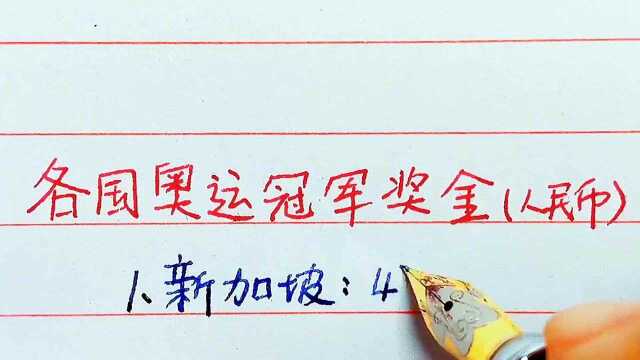 各国奥运冠军奖金(人民币)
1、新加坡：4